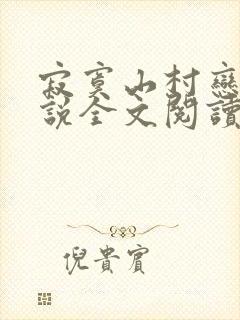 寂寞山村戀
說全文閱讀
倪貴賓